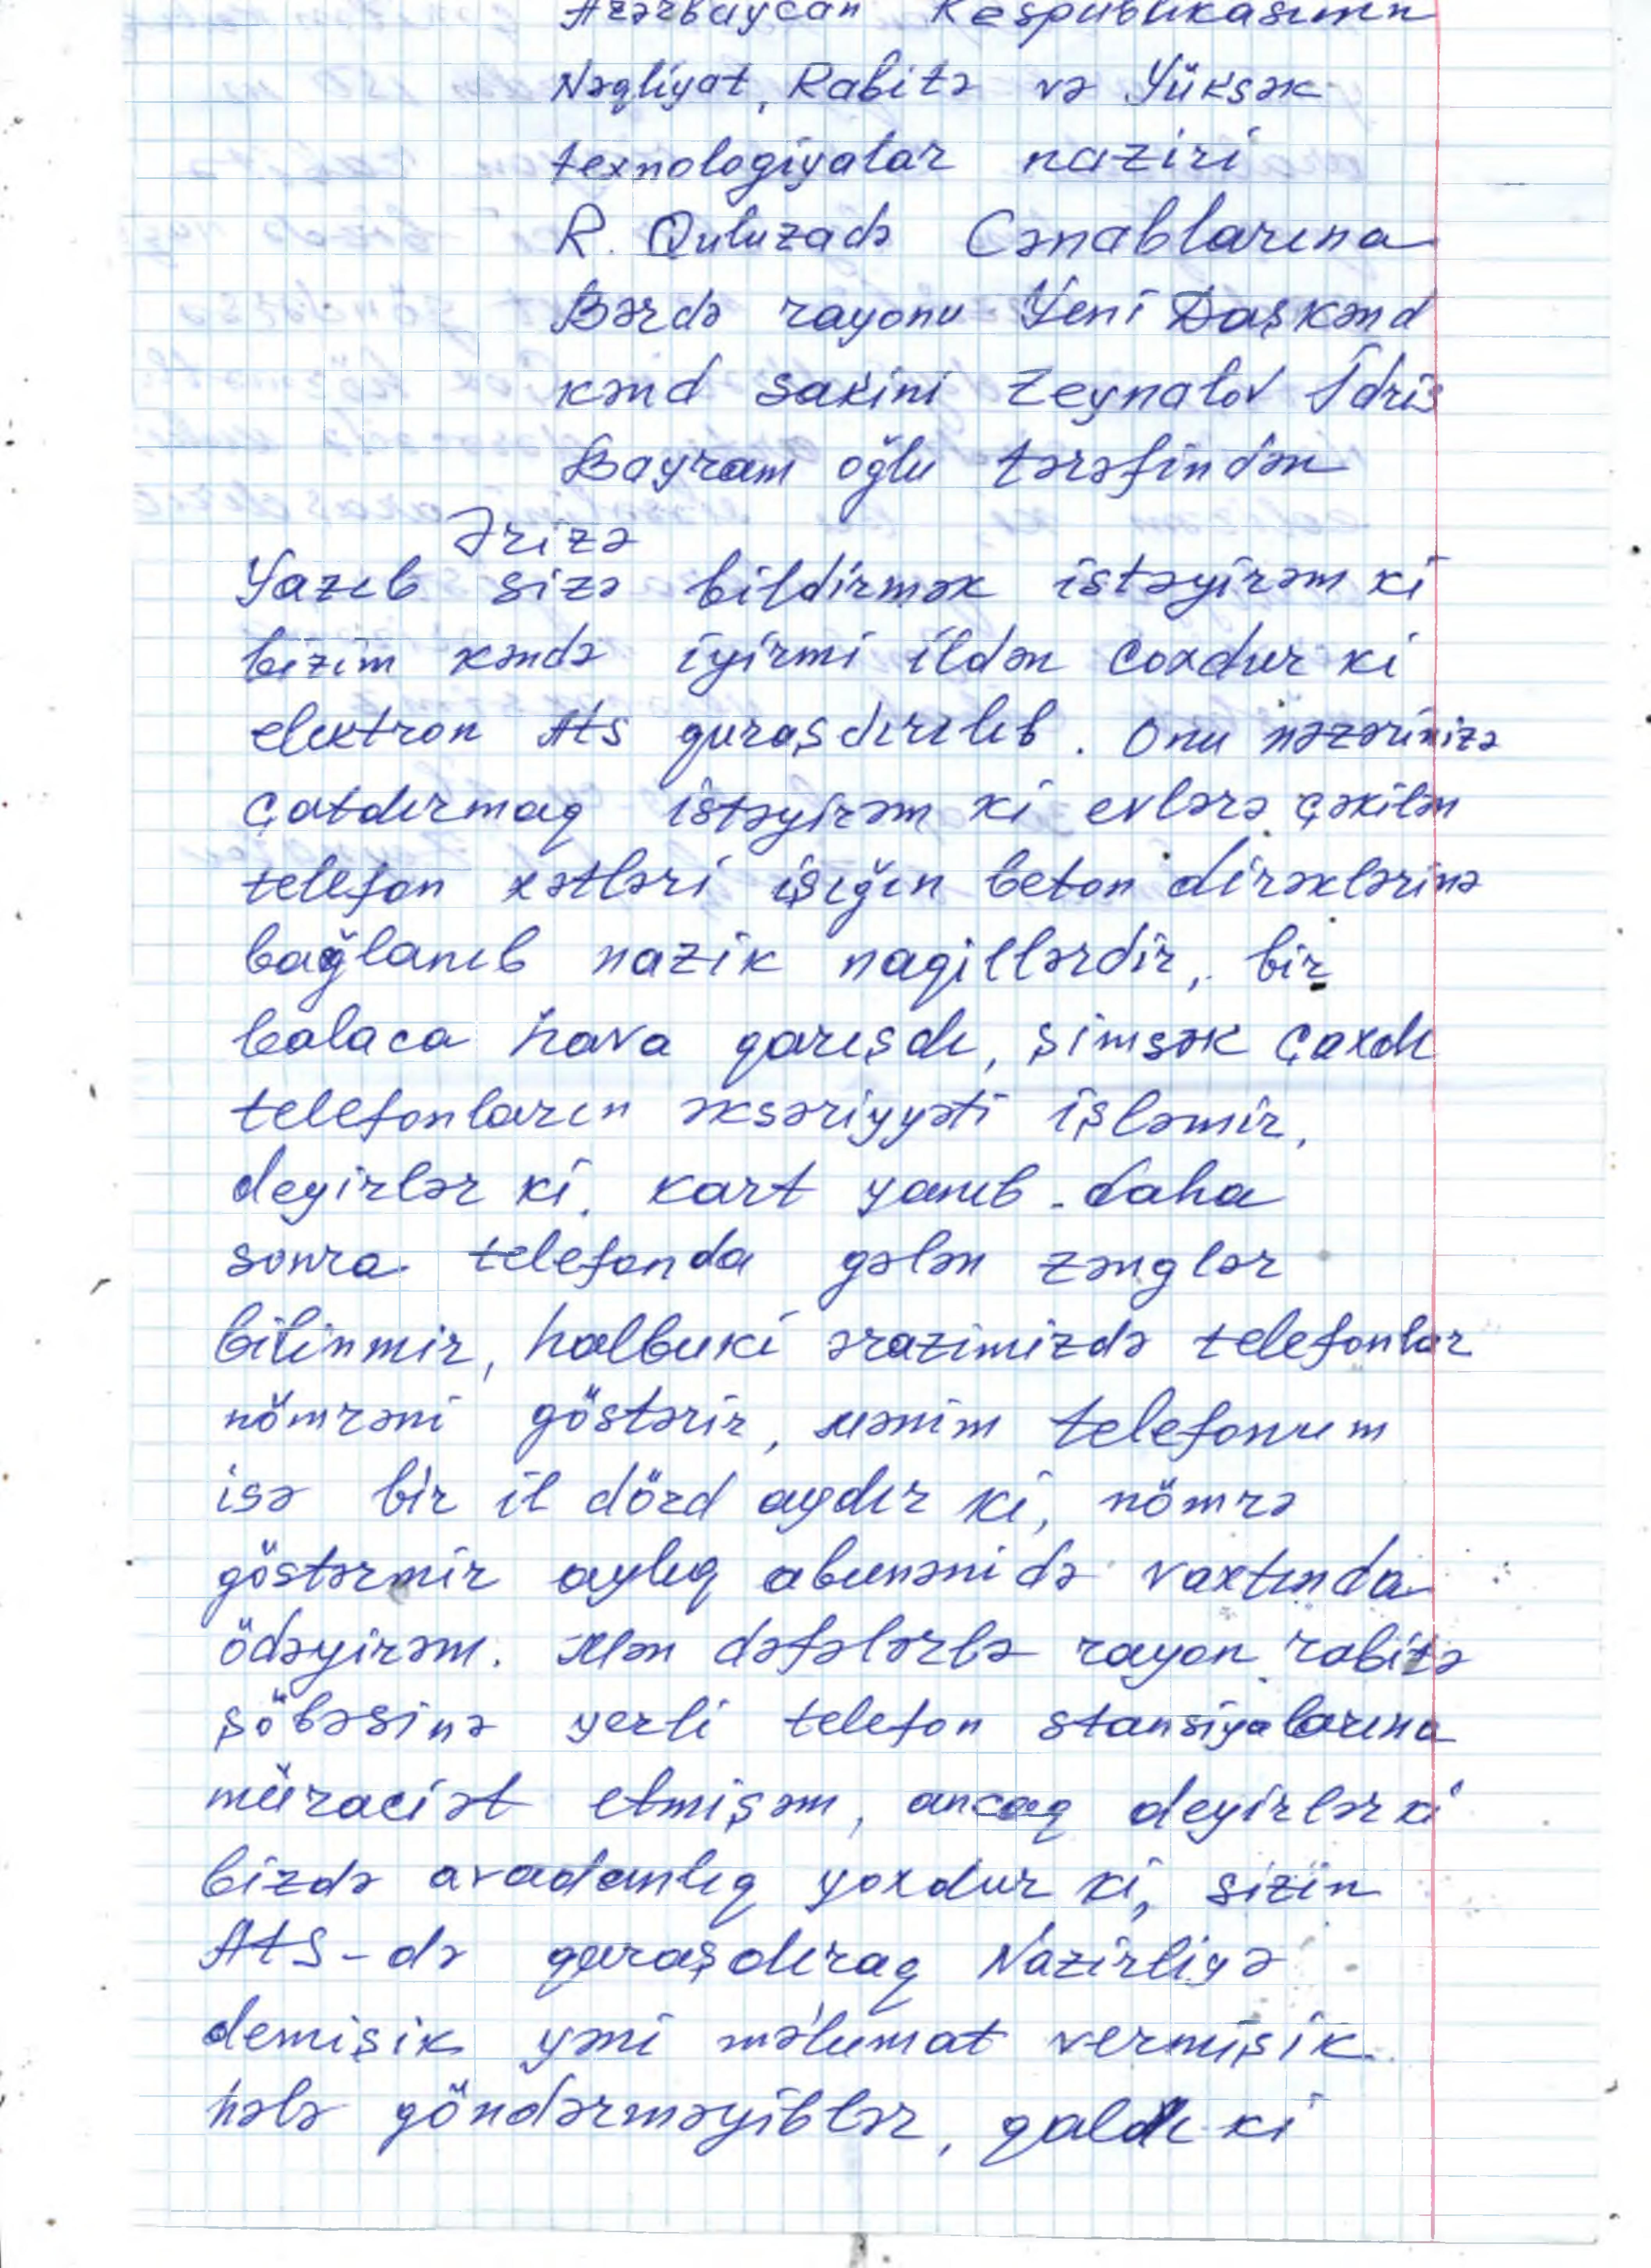 Azərbaycan Respublikasının
Nəqliyat, Rabitə və Yüksək
texnologiyalar naziri
R. Quluzadə Cənablarına
Bərdə rayonu Yeni Daşkənd
kənd sakini Zeynalov İdris
Bayram oğlu tərəfindən
Ərizə
Yazıb sizə bildirmək istəyirəm ki
bizim kəndə iyirmi ildən çoxdur ki
elektron Ats quraşdırılıb. Onu nəzərinizə
çatdırmaq istəyirəm ki evlərə çəkilən
telefon xətləri işığın beton dirəklərinə
bağlanıb nazik naqillərdir, bir
balaca hava qarışdı, şimşək çaxdı
telefonların əksəriyyəti işləmir,
deyirlər ki, kart yanıb. daha
sonra telefonda gələn zənglər
bilinmir, halbuki ərazimizdə telefonlar
nömrəni göstərir, mənim telefonum
isə bir il dörd aydır ki, nömrə
göstərmir aylıq abunənidə vaxtında
ödəyirəm. Mən dəfələrlə rayon rabitə
şöbəsinə yerli telefon stansiyalarına
müraciət etmişəm, ancaq deyirlər ki
bizdə avadanlıq yoxdur ki, sizin
Ats-də quraşdıraq Nazirliyə
demişik yəni məlumat vermişik
hələ göndərməyiblər, qaldı ki